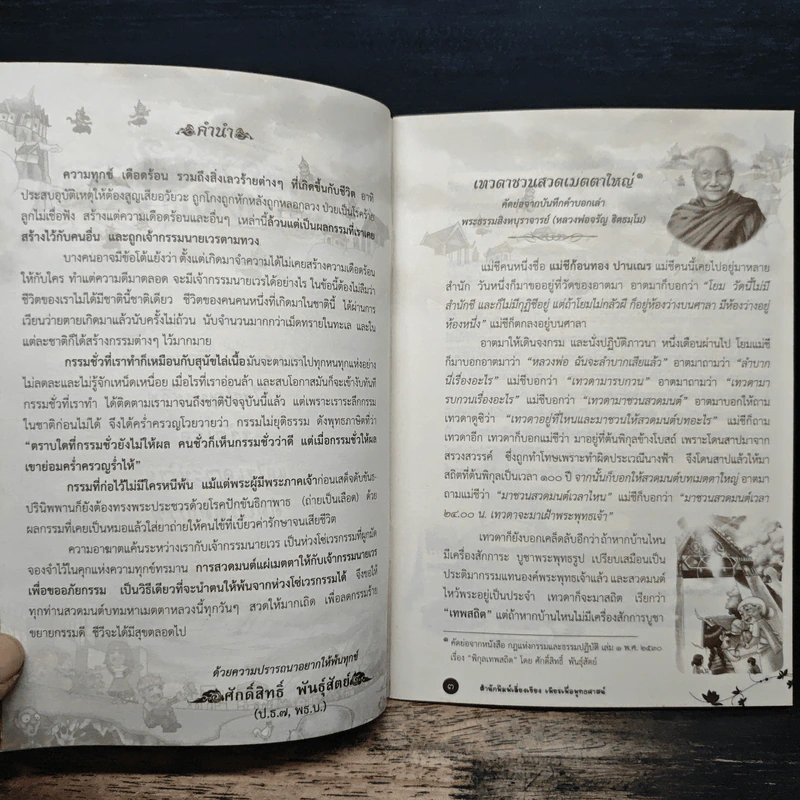 คำนำ
ความทุกข์ เดือดร้อน รวมถึงสิ่งเลวร้ายต่างๆ ที่เกิดขึ้นกับชีวิต อาทิ
ประสบอุบัติเหตุให้ต้องสูญเสียอวัยวะ ถูกโกงถูกหักหลังถูกหลอกลวง ป่วยเป็นโรคร้าย
ลูกไม่เชื่อฟัง สร้างแต่ความเดือดร้อนและอื่นๆ เหล่านี้ล้วนแต่เป็นผลกรรมที่เราเคย
สร้างไว้กับคนอื่น และถูกเจ้ากรรมนายเวรตามทวง
บางคนอาจมีข้อโต้แย้งว่า ตั้งแต่เกิดมาจำความได้ไม่เคยสร้างความเดือดร้อน
ให้กับใคร ทำแต่ความดีมาตลอด จะมีเจ้ากรรมนายเวรได้อย่างไร ในข้อนี้ต้องไม่ลืมว่า
ชีวิตของเราไม่ได้มีชาตินี้ชาติเดียว ชีวิตของคนคนหนึ่งที่เกิดมาในชาตินี้ ได้ผ่านการ
เวียนว่ายตายเกิดมาแล้วนับครั้งไม่ถ้วน นับจำนวนมากกว่าเม็ดทรายในทะเล และใน
แต่ละชาติก็ได้สร้างกรรมต่างๆ ไว้มากมาย
กรรมชั่วที่เราทำก็เหมือนกับสุนัขไล่เนื้อมันจะตามเราไปทุกหนทุกแห่งอย่าง
ไม่ลดละและไม่รู้จักเหน็ดเหนื่อย เมื่อไรที่เราอ่อนล้า และสบโอกาสมันก็จะเข้าขับทันที
กรรมชั่วที่เราทำ ได้ติดตามเรามาจนถึงชาติปัจจุบันนี้แล้ว แต่เพราะเราระลึกกรรม
ในชาติก่อนไม่ได้ จึงได้คร่ำครวญโวยวายว่า กรรมไม่ยุติธรรม ดังพุทธภาษิตที่ว่า
"ตราบใดที่กรรมชั่วยังไม่ให้ผล คนชั่วก็เห็นกรรมชั่วว่าดี แต่เมื่อกรรมชั่วให้ผล
เขาย่อมคร่ำครวญร่ำไห้"
กรรมที่ก่อไว้ไม่มีใครหนีพ้น แม้แต่พระผู้มีพระภาคเจ้าก่อนเสด็จดับขันธ-
ปรินิพพานก็ยังต้องทรงพระประชวรด้วยโรคปักขันธิกาพาธ (ถ่ายเป็นเลือด) ด้วย
ผลกรรมที่เคยเป็นหมอแล้วใส่ยาถ่ายให้คนไข้ที่เบี้ยวค่ารักษาจนเสียชีวิต
ความอาฆาตแค้นระหว่างเรากับเจ้ากรรมนายเวร เป็นห่วงโซ่เวรกรรมที่ผูกมัด
จองจำไว้ในคุกแห่งความทุกข์ทรมาน การสวดมนต์แผ่เมตตาให้กับเจ้ากรรมนายเวร
เพื่อขออภัยกรรม เป็นวิธีเดียวที่จะนำตนให้พ้นจากห่วงโซ่เวรกรรมได้ จึงขอให้
ทุกท่านสวดมนต์บทมหาเมตตาหลวงนี้ทุกวันๆ สวดให้มากเถิด เพื่อลดกรรมร้าย
ขยายกรรมดี ชีวีจะได้มีสุขตลอดไป
ด้วยความปรารถนาอยากให้พ้นทุกข์
ศักดิ์สิทธิ์ พันธุ์สัตย์
(ป.ธ.๗, พธ.บ.)
เทวดาชวนสวดเมตตาใหญ่ ๑
คัดย่อจากบันทึกคำบอกเล่า
พระธรรมสิงหบุราจารย์ (หลวงพ่อจรัญ ฐิตธมฺโม)
แม่ชีคนหนึ่งชื่อ แม่ชีก้อนทอง ปานเณร แม่ชีคนนี้เคยไปอยู่มาหลาย
สำนัก วันหนึ่งก็มาขออยู่ที่วัดของอาตมา อาตมาก็บอกว่า "โยม วัดนี้ไม่มี
สำนักชี และก็ไม่มีกุฏิชีอยู่ แต่ถ้าโยมไม่กลัวผี ก็อยู่ห้องว่างบนศาลา มีห้องว่างอยู่
ห้องหนึ่ง" แม่ชีก็ตกลงอยู่บนศาลา
อาตมาให้เดินจงกรม และนั่งปฏิบัติภาวนา หนึ่งเดือนผ่านไป โยมแม่ชี
ก็มาบอกอาตมาว่า "หลวงพ่อ ฉันจะลำบากเสียแล้ว" อาตมาถามว่า "ลำบาก
นี่เรื่องอะไร" แม่ชีบอกว่า "เทวดามารบกวน" อาตมาถามว่า "เทวดามา
รบกวนเรื่องอะไร" แม่ชีบอกว่า "เทวดามาชวนสวดมนต์" อาตมาบอกให้ถาม
เทวดาดูซิว่า "เทวดาอยู่ที่ไหนและมาชวนให้สวดมนต์บทอะไร" แม่ชีก็ถาม
เทวดาอีก เทวดาก็บอกแม่ชีว่า มาอยู่ที่ต้นพิกุลข้างโบสถ์ เพราะโดนสาปมาจาก
สรวงสวรรค์ ซึ่งถูกทำโทษเพราะทำผิดประเวณีนางฟ้า จึงโดนสาปแล้วให้มา
สถิตที่ต้นพิกุลเป็นเวลา ๑๐๐ ปี จากนั้นก็บอกให้สวดมนต์บทเมตตาใหญ่ อาตมา
ถามแม่ชีว่า "มาชวนสวดมนต์เวลาไหน" แม่ชีก็บอกว่า "มาชวนสวดมนต์เวลา
๒๔.๐๐ น. เทวดาจะมาเฝ้าพระพุทธเจ้า"
เทวดาก็ยังบอกเคล็ดลับอีกว่า ถ้าหากบ้านไหน
มีเครื่องสักการะ บูชาพระพุทธรูป เปรียบเสมือนเป็น
ประติมากรรมแทนองค์พระพุทธเจ้าแล้ว และสวดมนต์
ไหว้พระอยู่เป็นประจำ เทวดาก็จะมาสถิต เรียกว่า
"เทพสถิต" แต่ถ้าหากบ้านไหนไม่มีเครื่องสักการบูชา
๑ คัดย่อจากหนังสือ กฎแห่งกรรมและธรรมปฏิบัติ เล่ม ๑ พ.ศ. ๒๕๓๐
เรื่อง "พิกุลเทพสถิต" โดย ศักดิ์สิทธิ์ พันธุ์สัตย์
๓ สำนักพิมพ์เลี่ยงเชียง เพียรเพื่อพุทธศาสน์